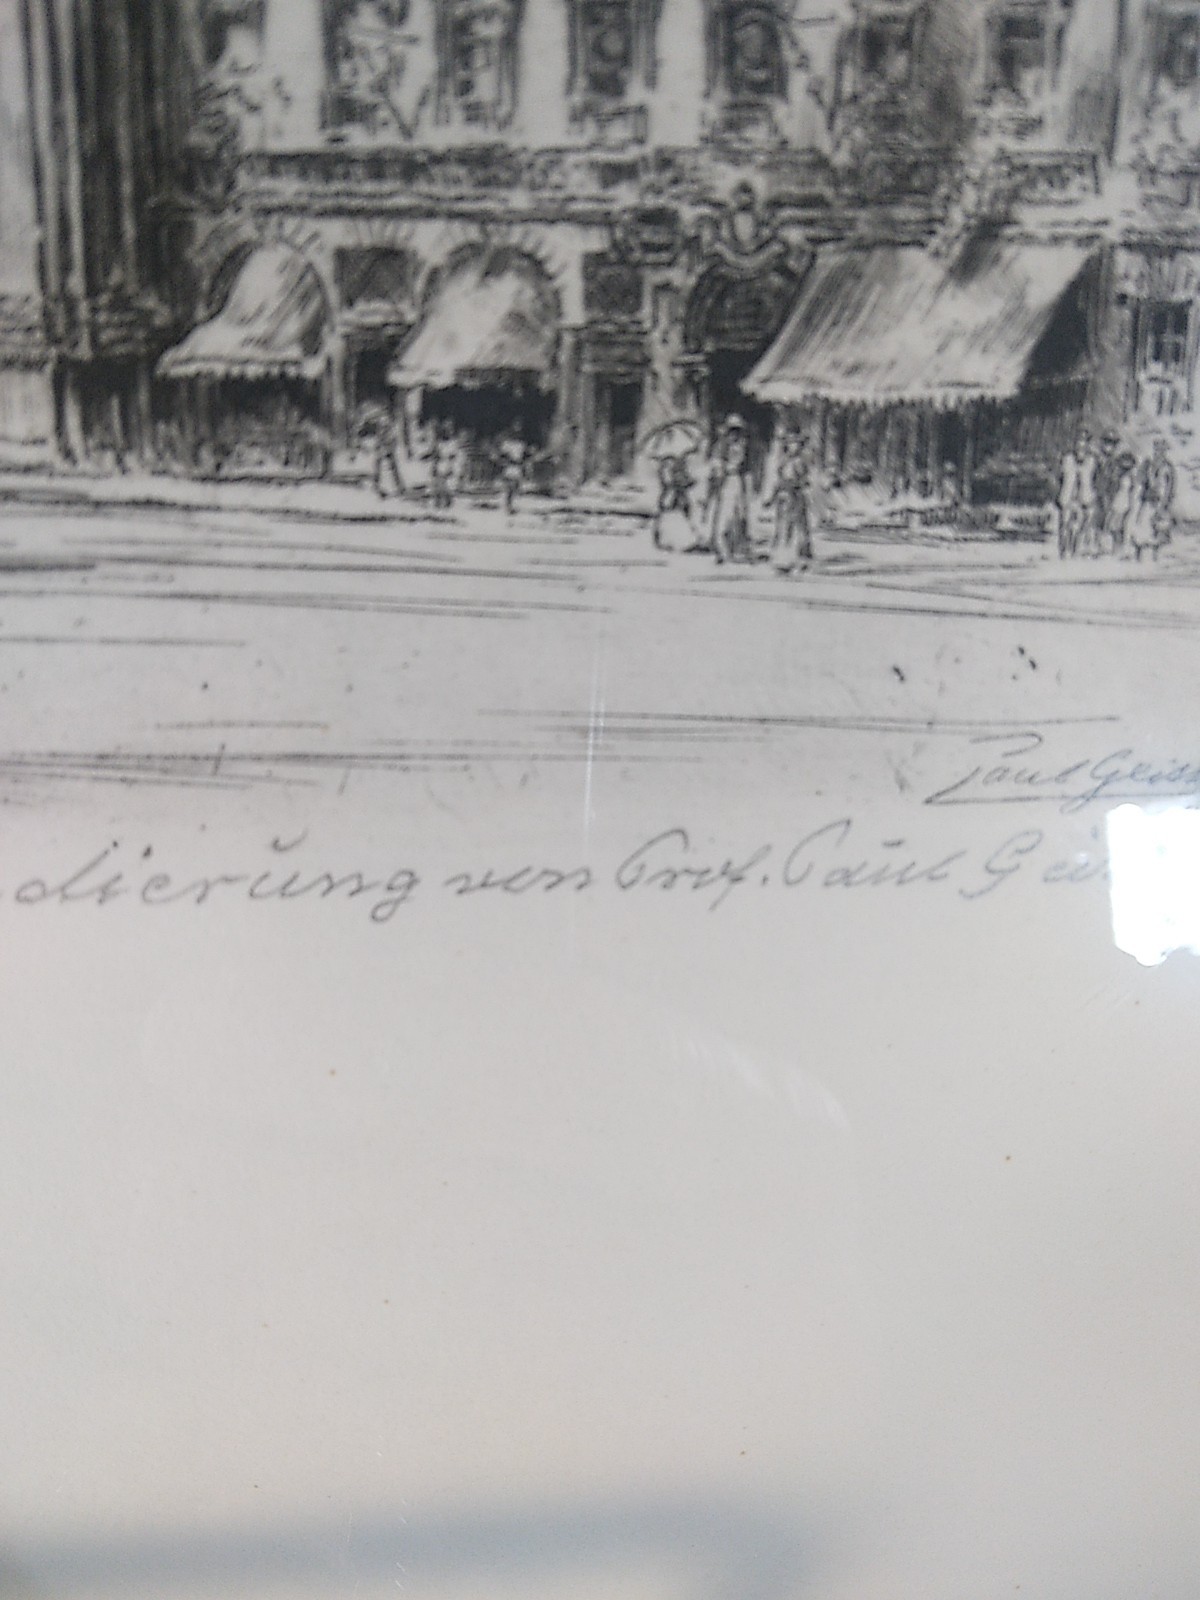 Paul Geiss
dierung von Prof. Paul Gei